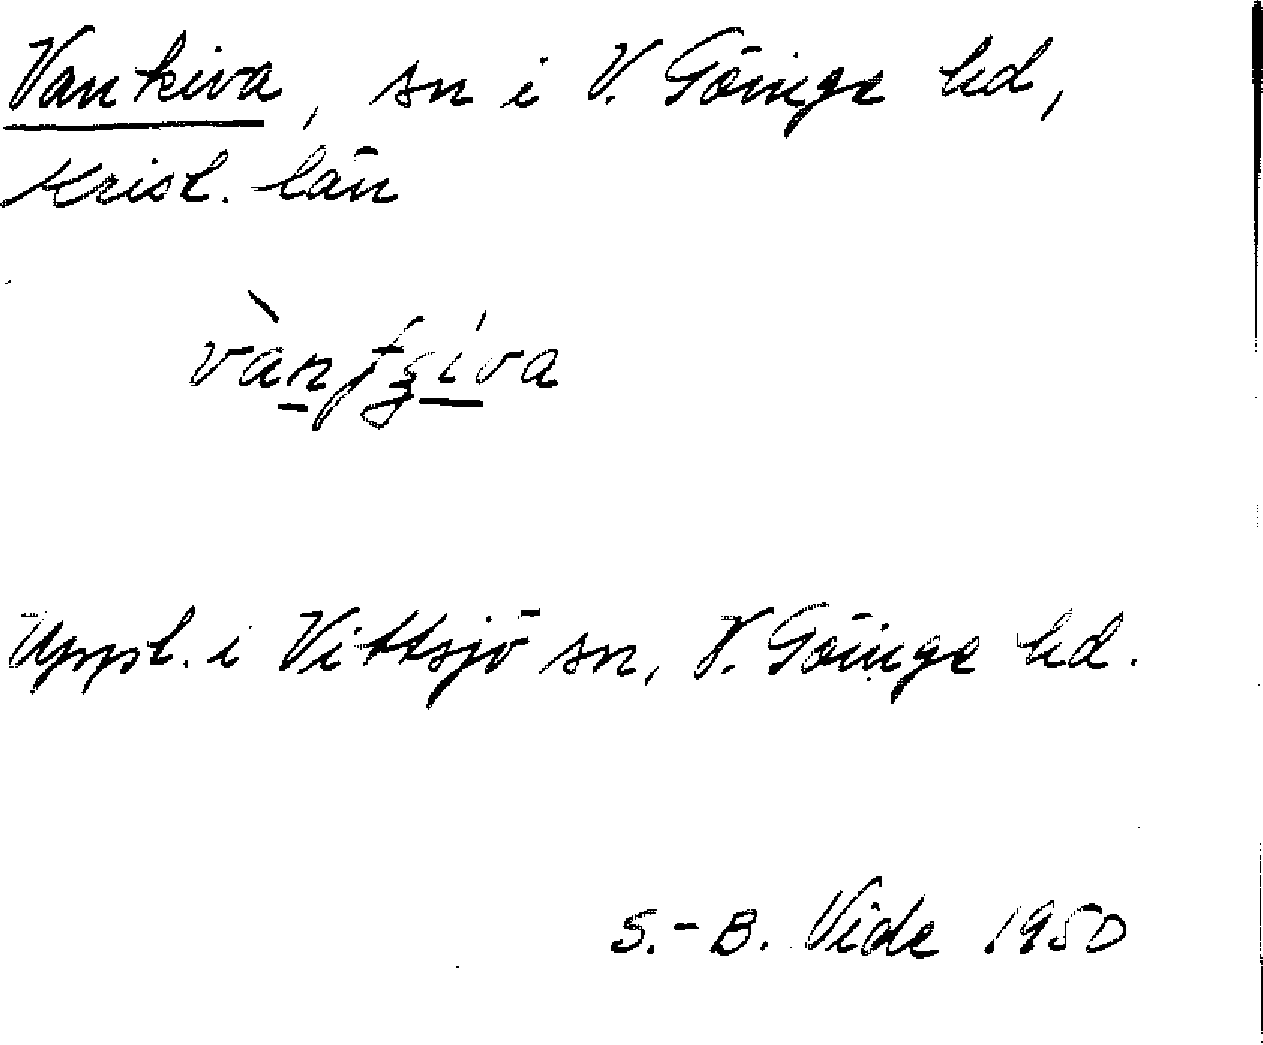 Vankiva, sn i V. Göinge hd,
Krist. län
Uppt. i Vittsjö sn, V. Göinge hd.
S.-B. Vide 1950